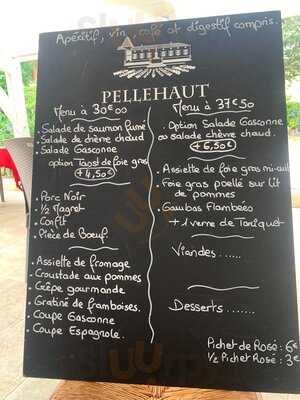 Apéritif, vin, café et digestif compris.
PELLEHAUT
Menu à 30€00
. Salade de saumon fumé
. Salade de chèvre chaud
. Salade Gasconne
option Toast de foie gras
+4,50€
. Porc Noir
. 1/2 Magret
. Confit
. Pièce de Boeuf.
. Assiette de fromage
. Croustade aux pommes
. Crêpe gourmande
. Gratiné de framboises.
. Coupe Gasconne
. Coupe Espagnole.
Menu à 37€50
. Option Salade Gasconne
ou salade chèvre chaud.
+6,50€
. Assiette de foie gras mi-cuit
. Foie gras poellé sur lit
de pommes
. Gambas Flambées
+ 1 verre de Tariquet
Viandes......
Desserts......
Pichet de Rosé : 6€
1/2 Pichet Rosé : 3€